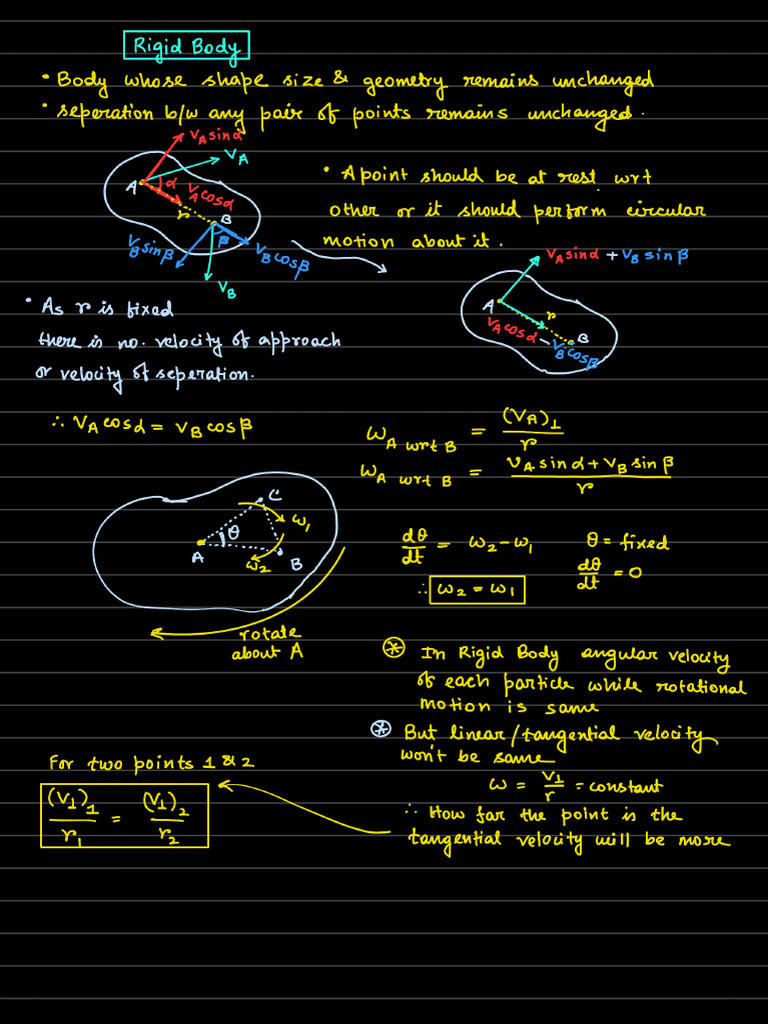 Rigid Body
• Body whose shape size & geometry remains unchanged
• seperation b/w any pair of points remains unchanged.
V_A sinα
V_A
A
α
V_A cosα
r
B
β
V_B sinβ
V_B cosβ
V_B
• A point should be at rest wrt
other or it should perform circular
motion about it.
V_A sinα + V_B sinβ
A
r
B
V_A cosα - V_B cosβ
• As r is fixed
there is no. velocity of approach
or velocity of seperation.
∴ V_A cosα = V_B cosβ
ω_A wrt B = (V_A)⊥ / r
ω_A wrt B = V_A sinα + V_B sinβ / r
C
ω₁
θ
A
ω₂
B
rotate
about A
dθ/dt = ω₂ - ω₁ θ = fixed
dθ/dt = 0
∴ ω₂ = ω₁
⊛ In Rigid Body angular velocity
of each particle while rotational
motion is same
⊛ But linear/tangential velocity
won't be same
ω = V⊥/r = constant
∴ How far the point is the
tangential velocity will be more
For two points 1 & 2
(V⊥)₁/r₁ = (V⊥)₂/r₂